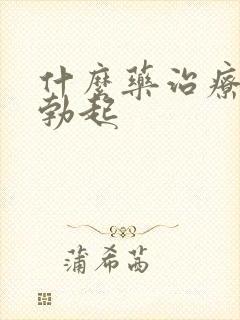 什麼藥治療
勃起
蒲希茜